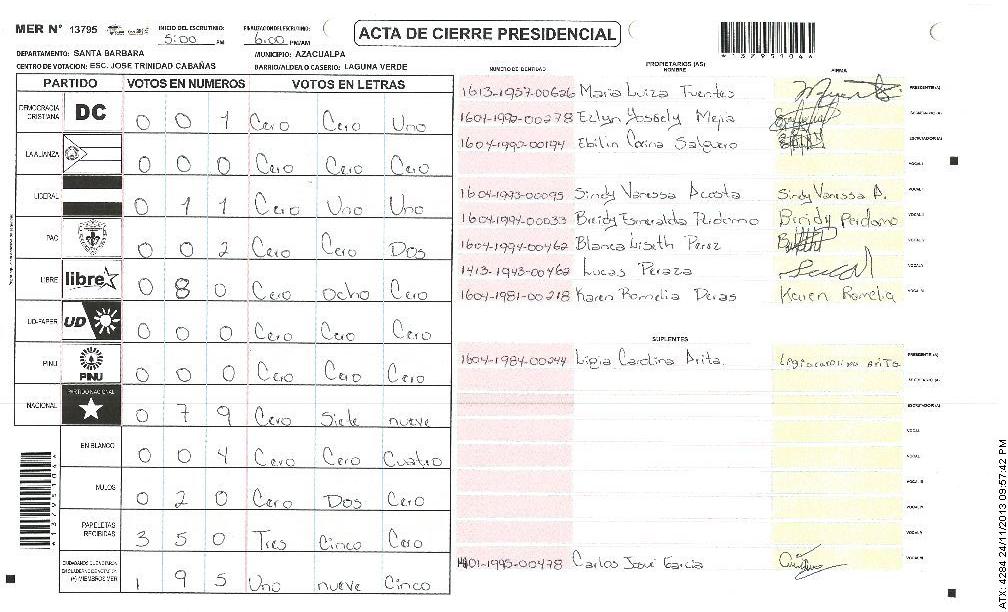 MER N° 13795 INICIO DEL ESCRUTINIO: 5:00 PM FINALIZACION DEL ESCRUTINIO: 6:00 PM/AM ACTA DE CIERRE PRESIDENCIAL
DEPARTAMENTO: SANTA BARBARA MUNICIPIO: AZACUALPA
CENTRO DE VOTACION: ESC. JOSE TRINIDAD CABAÑAS BARRIO/ALDEA/O CASERIO: LAGUNA VERDE
PARTIDO VOTOS EN NUMEROS VOTOS EN LETRAS
DEMOCRACIA CRISTIANA DC 0 0 1 Cero Cero Uno
LA ALIANZA 0 0 0 Cero Cero Cero
LIBERAL 0 1 1 Cero Uno Uno
PAC 0 0 2 Cero Cero Dos
LIBRE libre 0 8 0 Cero ocho Cero
UD-FAPER UD 0 0 0 Cero Cero Cero
PINU PINU 0 0 0 Cero Cero Cero
NACIONAL PARTIDO NACIONAL 0 7 9 Cero Siete nueve
EN BLANCO 0 0 4 Cero Cero Cuatro
NULOS 0 2 0 Cero Dos Cero
PAPELETAS RECIBIDAS 3 5 0 Tres Cinco Cero
(+) MIEMBROS MER 1 9 5 Uno nueve Cinco
NUMERO DE IDENTIDAD PROPIETARIOS (AS) NOMBRE FIRMA
1613-1957-00626 Maria Luiza Fuentes PRESIDENTE (A)
1604-1992-00278 Edlyn Yossely Mejia
1604-1992-00194 Ebilin Corina Salguero ESCRUTADOR (A)
VOCAL I
1604-1993-00095 Sindy Vanessa Acosta Sindy Vanessa A.
1604-1994-00033 Breidy Esmeralda Perdomo Breidy Perdomo
1604-1994-00462 Blanca Liseth Perez
1413-1943-00462 Lucas Peraza
1604-1981-00218 Karen Romelia Deras Karen Romelia
SUPLENTES
1604-1984-00244 Ligia Carolina Arita Ligia carolina Arita PRESIDENTE (A)
SECRETARIO (A)
ESCRUTADOR (A)
1401-1995-00478 Carlos José Garcia
*13795104*
ATX: 4284 24/11/2013 09:57:42 PM